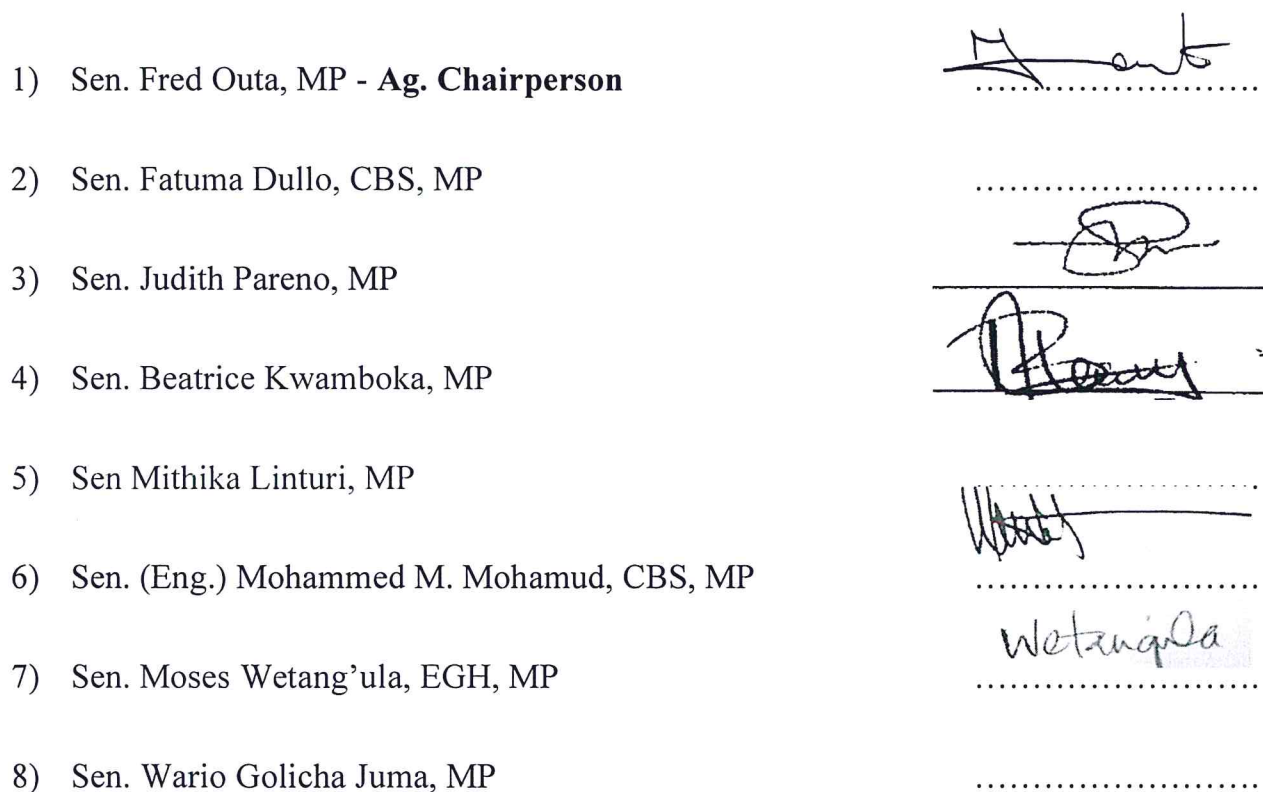 1) Sen. Fred Outa, MP - Ag. Chairperson ........................
2) Sen. Fatuma Dullo, CBS, MP ........................
3) Sen. Judith Pareno, MP
4) Sen. Beatrice Kwamboka, MP
5) Sen Mithika Linturi, MP ........................
6) Sen. (Eng.) Mohammed M. Mohamud, CBS, MP ........................
Wetangula
7) Sen. Moses Wetang’ula, EGH, MP ........................
8) Sen. Wario Golicha Juma, MP ........................